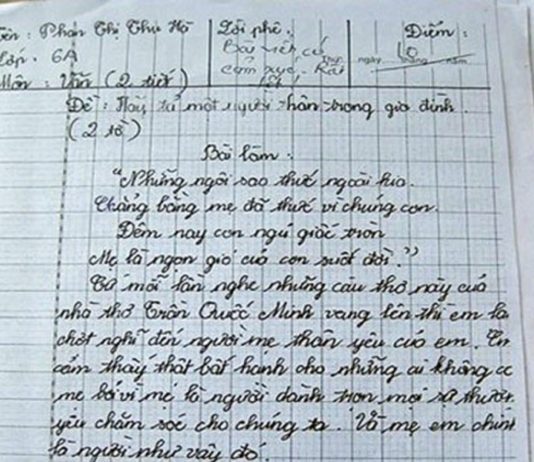 Tên : Phan Thị Thu Hà
Lớp : 6A
Môn : Văn (2 tiết)
Lời phê :
Bài viết có
cảm xúc. Rất
Điểm :
10
ngày tháng năm
Đề : Hãy tả một người thân trong gia đình.
(2 tờ)
Bài làm :
"Những ngôi sao thức ngoài kia.
Chẳng bằng mẹ đã thức vì chúng con.
Đêm nay con ngủ giấc tròn
Mẹ là ngọn gió của con suốt đời."
Cứ mỗi lần nghe những câu thơ này của
nhà thơ Trần Quốc Minh vang lên thì em lại
chợt nghĩ đến người mẹ thân yêu của em. Em
cảm thấy thật bất hạnh cho những ai không có
mẹ bởi vì mẹ là người dành trọn mọi sự thương
yêu chăm sóc cho chúng ta. Và mẹ em chính
là người như vậy đó.